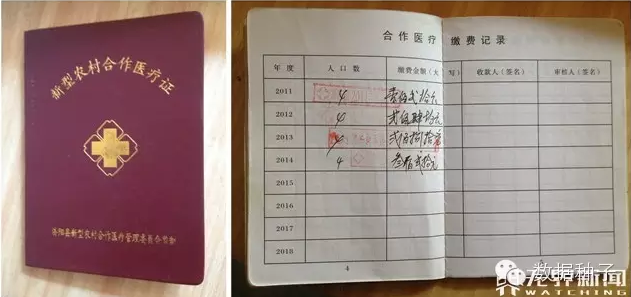 新型农村合作医疗证
县新型农村合作医疗管理委员会
合作医疗 缴费记录
年度 人口数 缴费金额（大写） 收款人（签名） 审核人（签名）
2011 4 壹佰贰拾元
2012 4 贰佰肆拾元
2013 4 贰佰捌拾元
2014 4 叁佰贰拾元
2015
2016
2017
2018
4
数据种子
新闻
WATCHING